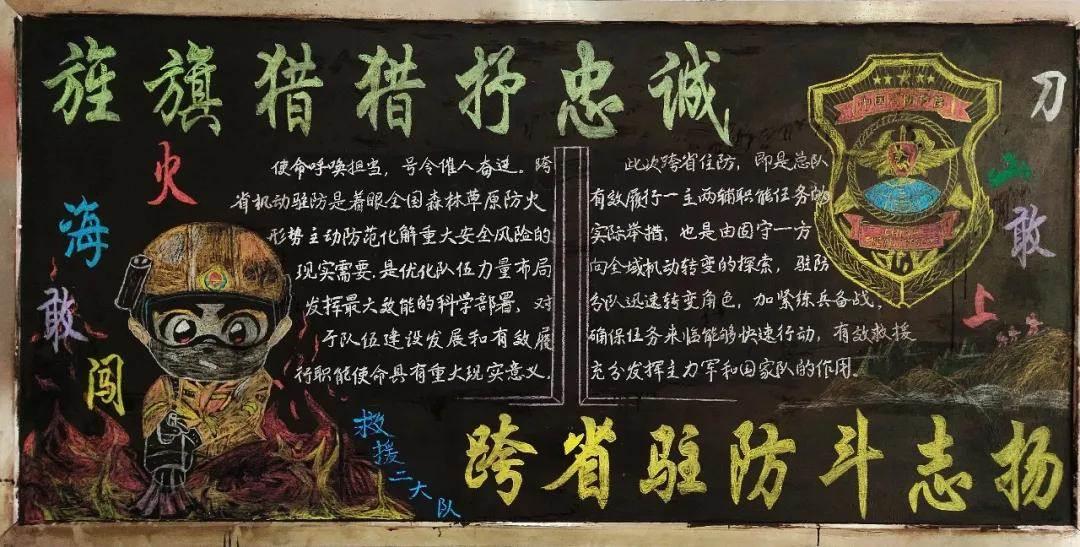 旌旗猎猎抒忠诚
火海敢闯
刀山敢上
使命呼唤担当，号令催人奋进。跨
省机动驻防是着眼全国森林草原防火
形势主动防范化解重大安全风险的
现实需要，是优化队伍力量布局
发挥最大效能的科学部署，对
于队伍建设发展和有效履
行职能使命具有重大现实意义。
此次跨省住防，即是总队
有效履行一主两辅职能任务的
实际举措，也是由固守一方
向全域机动转变的探索，驻防
分队迅速转变角色，加紧练兵备战，
确保任务来临能够快速行动，有效救援
充分发挥主力军和国家队的作用。
救援二大队
跨省驻防斗志扬